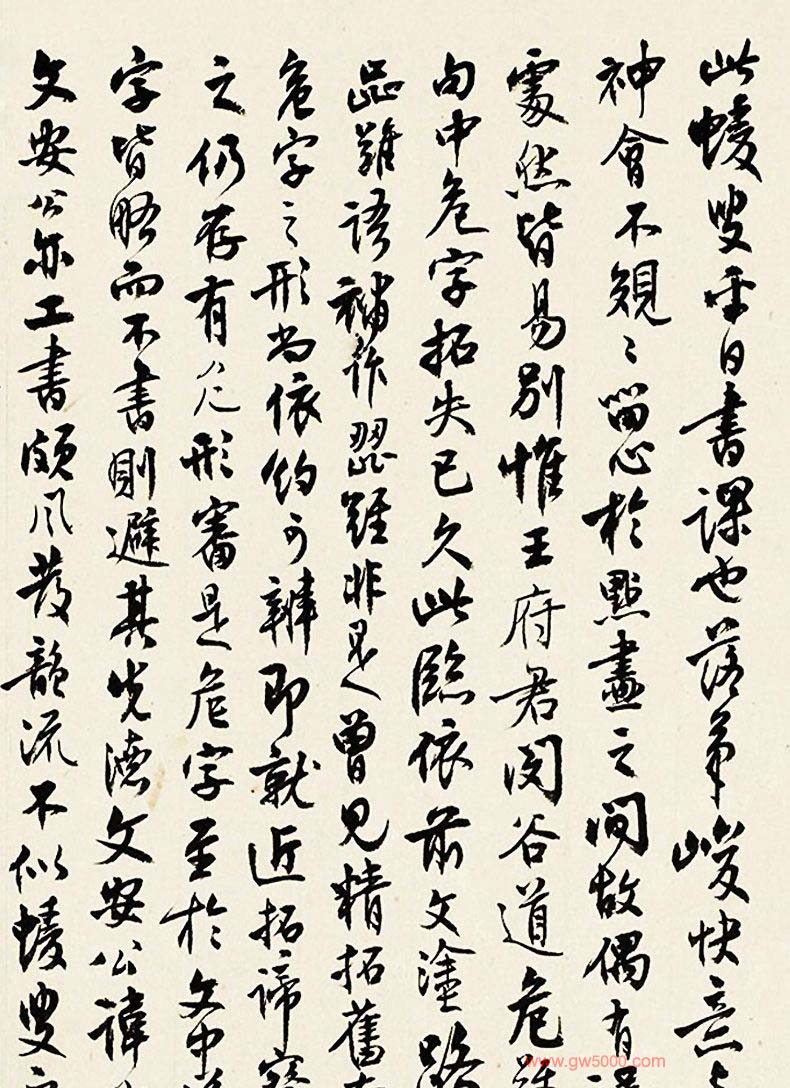 此蝯叟平日書課也落筆峻快意
神會不覙〻留心於點畫之間故偶有
處然皆易別惟王府君閔谷道危
句中危字拓失已久此臨依前文塗路
歰難語補作歰難非是曾見精拓舊
危字之形尚依約可辨即就近拓諦審
之仍存有⺈几形審是危字至於文中
字皆略而不書則避其先德文安公諱
文安公亦工書頗風發韻流不似蝯叟
www.gw5000.com